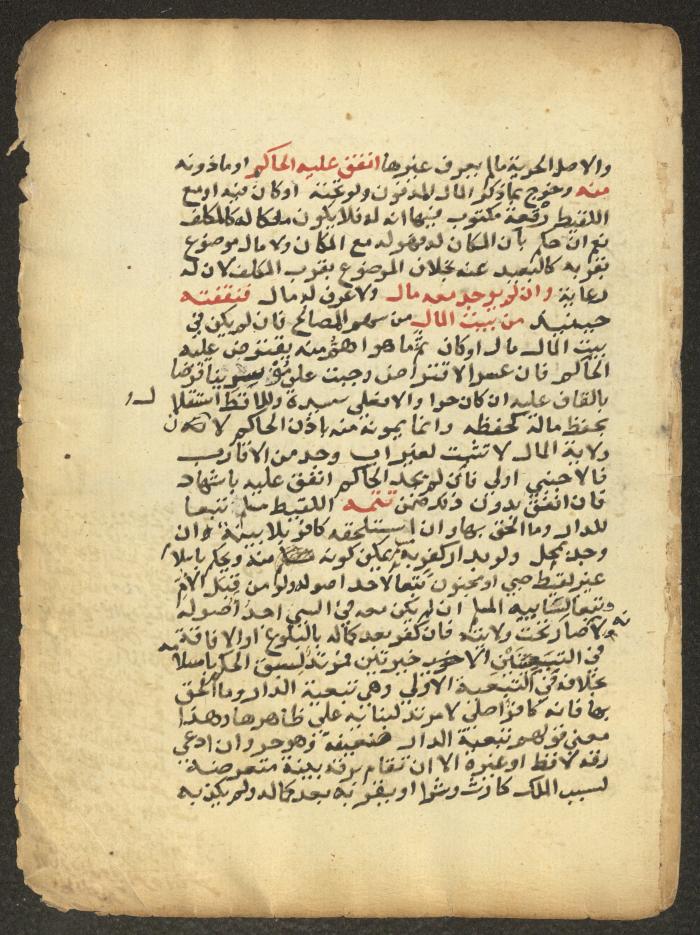 والاصل الحرية ما لم يعرف غيرها انفق عليه الحاكم او ماذونه
منه وخرج بما ذكر المال المدفون ولو تحته او كان فيه او مع
اللقيط رقعة مكتوب فيها انه له فلا يكون ملكا له كالمكلف
نعم ان حكم بان المكان له فهو له مع المكان ولا مال موضوع
بقربه كالبعيد عنه بخلاف الموضوع بقرب المكلف لان له
رعاية وان لم يوجد معه مال ولا عرف له مال فنفقته
حينيذ من بيت المال من سهم المصالح فان لم يكن في
بيت المال مال او كان ثم ما هو اهم منه يقترض عليه
الحاكم فان عسر الاقتراض وجبت على موسرينا قرضا
بالقاف عليه ان كان حرا والا فعلى سيده وللاقط استقلال
بحفظ ماله كحفظه وانما يمونه منه باذن الحاكم لان
ولاية المال لا تثبت لغير اب وجد من الاقارب
فالاجنبي اولى فان لم يجد الحاكم انفق عليه باشهاد
فان انفق بدون ذلك ضمن تتمه اللقيط مسلم تبعا
للدار وما الحق بها وان استلحقه كافر بلا بينة وان
وجد بمحل ولو بدار كفر به يمكن كونه منه ويحكم باسلام
غير لقيط صبي او مجنون تبعا لاحد اصوله ولو من قبل الام
وتبعا لسابيه المسلم ان لم يكن معه في السبي احد اصوله
لانه صار تحت ولايته فان كفر بعد كماله بالبلوغ او الافاقة
في التبعيتين الاخيرتين فمرتد لسبق الحكم باسلامه
بخلافه في التبعية الاولى وهي تبعية الدار وما الحق
بها فانه كافر اصلي لا مرتد لبنائه على ظاهرها وهذا
معنى قولهم تبعية الدار ضعيفة وهو حر وان ادعى
رقه لاقط او غيره الا ان تقام برقه بينة متعرضة
لسبب الملك كارث وشرا او يقر به بعد كماله ولم يكذبه